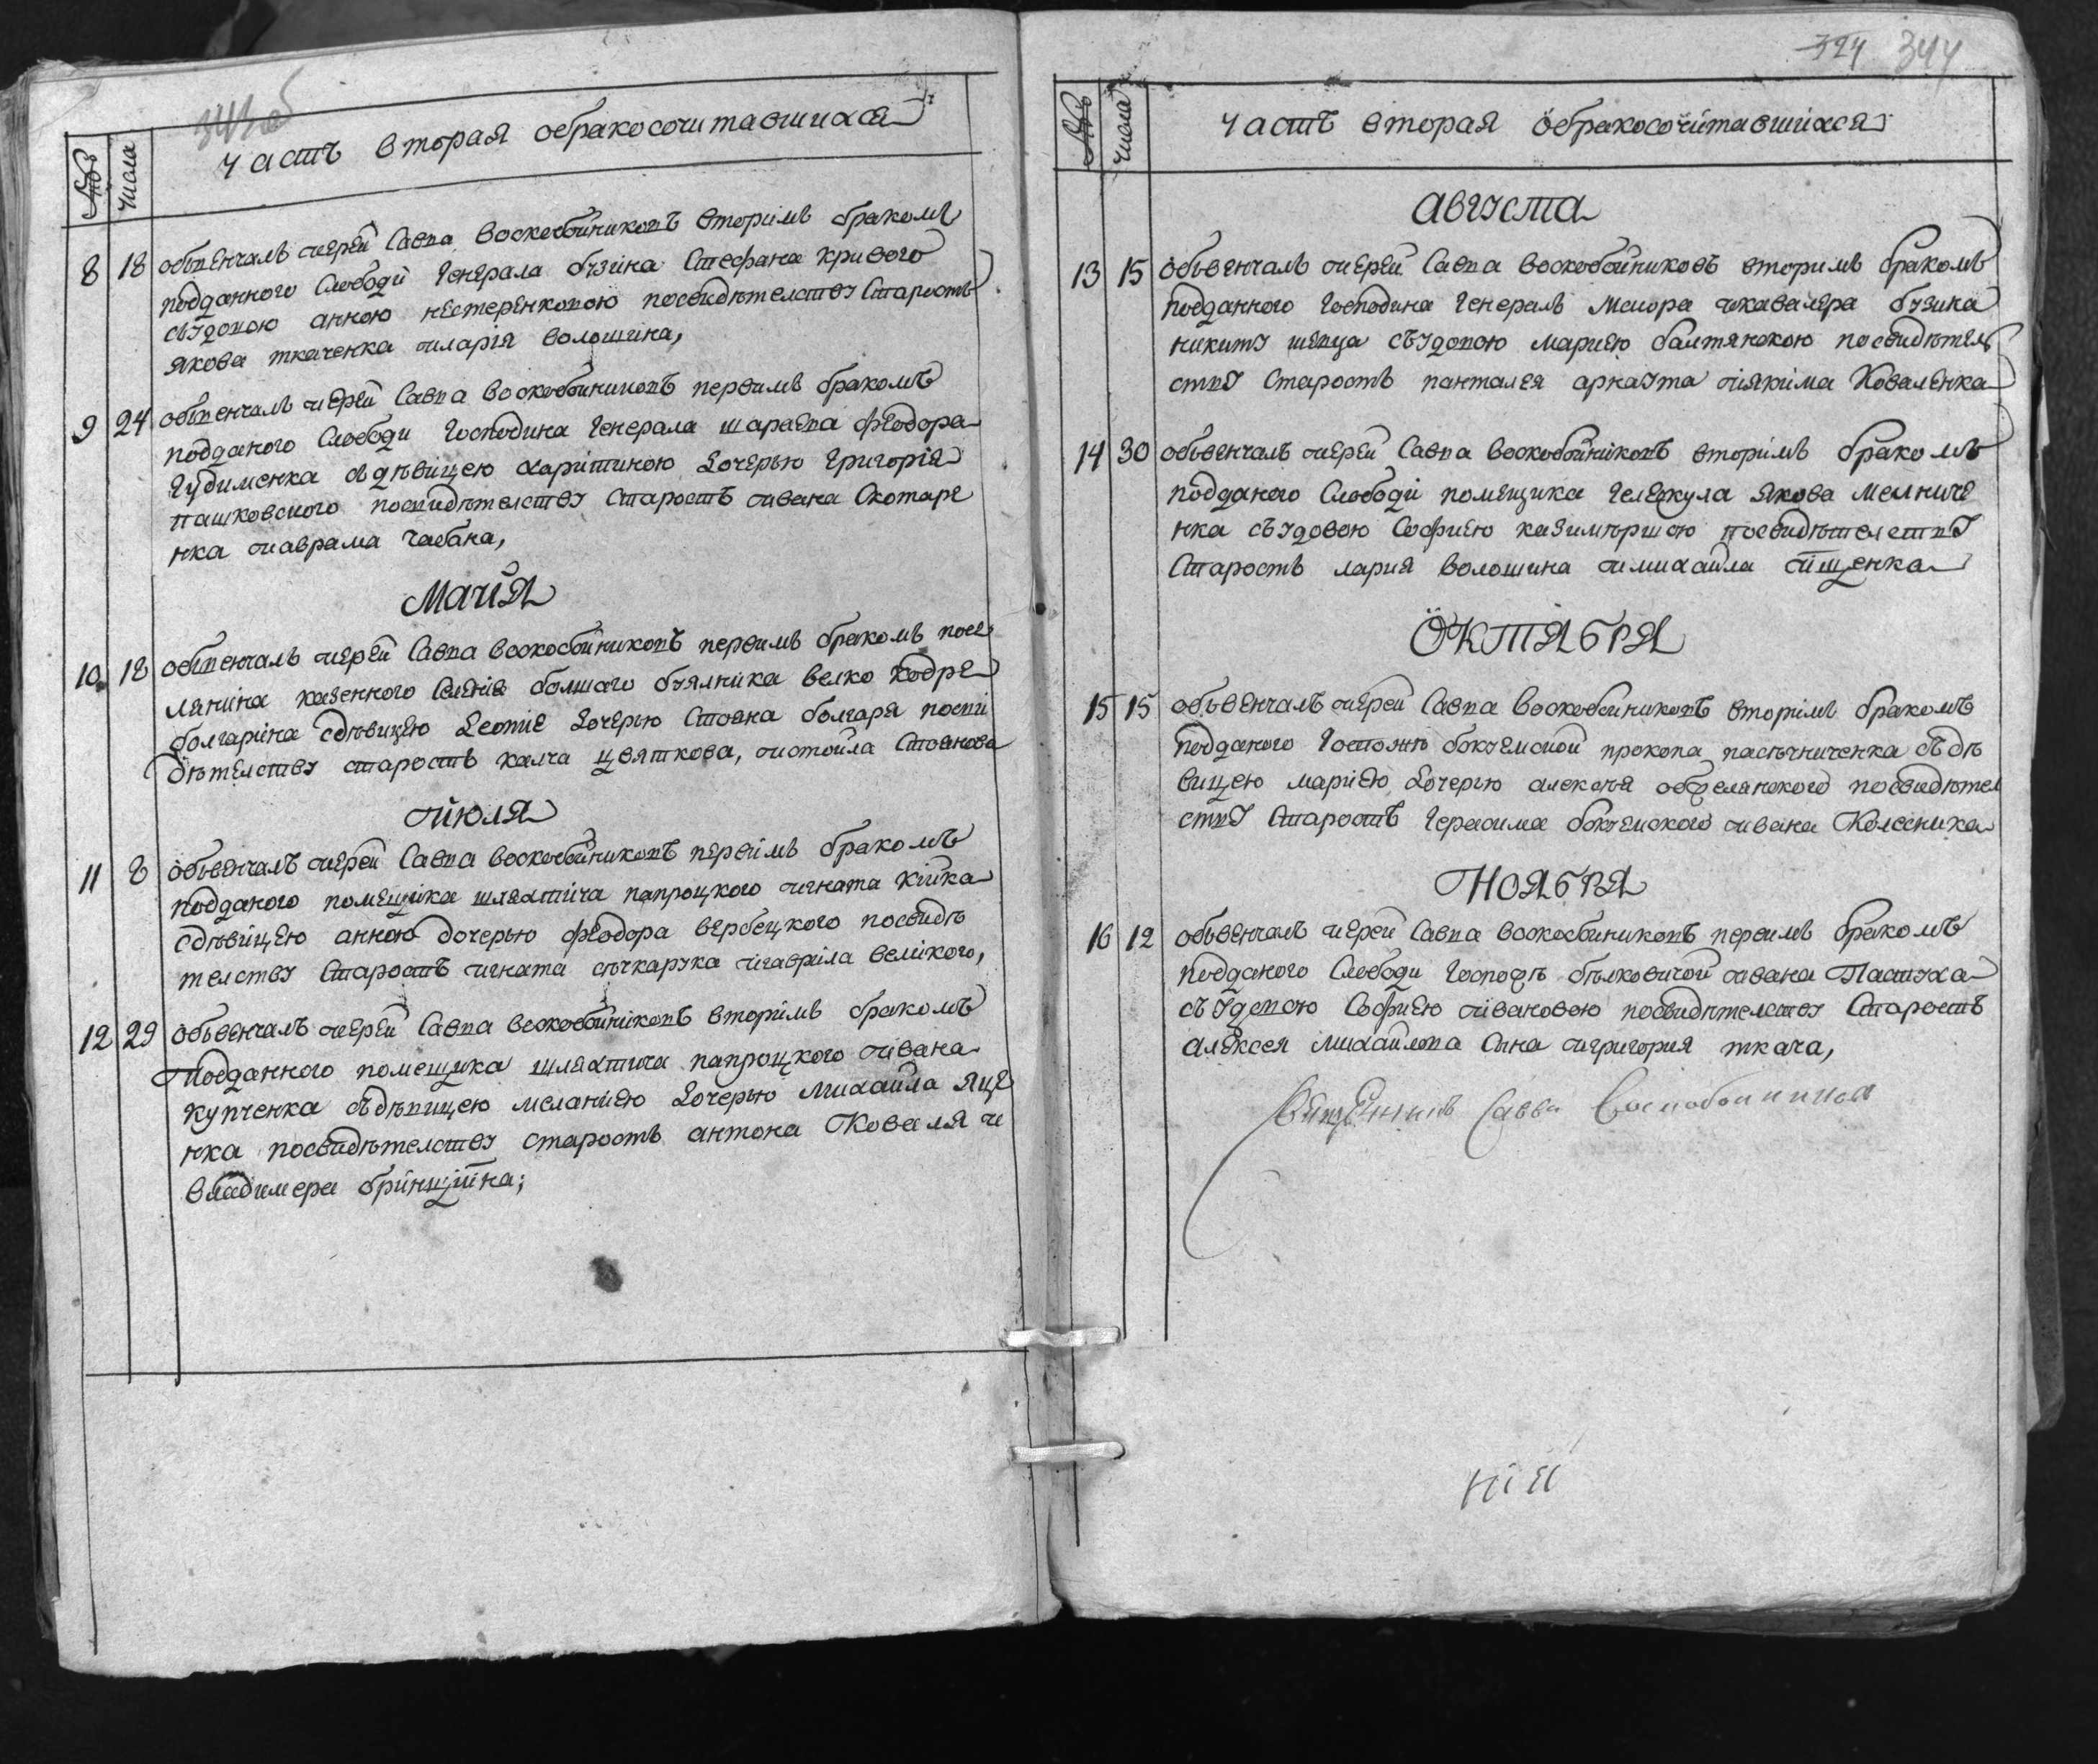 343 об
№
числа
Часть вторая обракосочитавшихся
8 18 обвенчалъ иерей Савва Воскобойниковъ вторимъ бракомъ
подданного Слободи Генерала бузина Стефана Кривого
съудовою анною нестеренковою посвидѣтелству Старостъ
якова ткаченка иларія волошина,
9 24 обвенчалъ иерей Савва Воскобойниковъ первимъ бракомъ
подданого Слободи Господина Генерала шараева Феодора
гудименка сдѣвицею харитиною дочерью Григорія
пашковского посвидѣтелству Старостъ ивана Скотаре
нка иаврама чабана,
Маия
10 18 обвенчалъ иерей Савва Воскобойниковъ первимъ бракомъ посе
лянина казенного Селенія болшаго буялника велко кодре
болгарина сдѣвицею дочерью Стояна болгара посви
дѣтелству старостъ калча цвяткова, истоила Стоянова
июля
11 8 обьвенчалъ иерей Савва воскобойниковъ первимъ бракомъ
подданого помещика шляхтича папроцкого игната Кийка
сдѣвицею анною дочерью феодора вербецкого посвидѣ
телству Старостъ игната сѣчкарука игаврила великого,
12 29 обьвенчалъ иерей Савва воскобойниковъ вторимъ бракомъ
Подданного помещика шляхтича папроцкого ивана
купченка сдѣвицею меланиею дочерью михаила яце
нка посвидѣтелству старостъ антона Коваля и
владимера
324 344
№
числа
Часть вторая обракосочитавшихся
августа
13 15 обьвенчалъ иерей Савва воскобойниковъ вторимъ бракомъ
подданного Господина Генералъ Маиора икавалера бузина
никиту шевца съудовою мариею балтянскою посвидѣтель
ству Старостъ панталея арнаута иякима Коваленка
14 30 обьвенчалъ иерей Савва воскобойниковъ вторимъ бракомъ
подданого Слободи помещика гележула якова мелниче
нка съудовою Софиею казимѣршою посвидѣтелству
Старостъ лария волошина имихаила ищенка
Октября
15 15 обьвенчалъ иерей Савва воскобойниковъ вторимъ бракомъ
подданого Госпожи прокопа пасѣчниченка сдѣ
вицею мариею дочерью алексея посвидѣтел
ству Старостъ Герасима ивана Колесника
Ноября
16 12 обьвенчалъ иерей Савва воскобойниковъ первимъ бракомъ
подданого Слободи Госпожѣ бѣлковичой ивана Пастуха
съудовою Софиею ивановою посвидѣтелству Старостъ
алексея михаилова Сина игригория ткача,
Священникъ Савва Воскобойниковъ